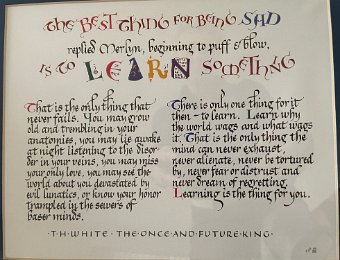 the BEST THING FOR BEING SAD
replied Merlyn, beginning to puff & blow,
IS TO LEARN SOMETHING
That is the only thing that
never fails. You may grow
old and trembling in your
anatomies, you may lie awake
at night listening to the disor-
der in your veins, you may miss
your only love, you may see the
world about you devastated by
evil lunatics, or know your honor
trampled in the sewers of
baser minds.
There is only one thing for it
then - to learn. Learn why
the world wags and what wags
it. That is the only thing the
mind can never exhaust,
never alienate, never be tortured
by, never fear or distrust and
never dream of regretting.
Learning is the thing for you.
T·H·WHITE · THE·ONCE·AND·FUTURE·KING·